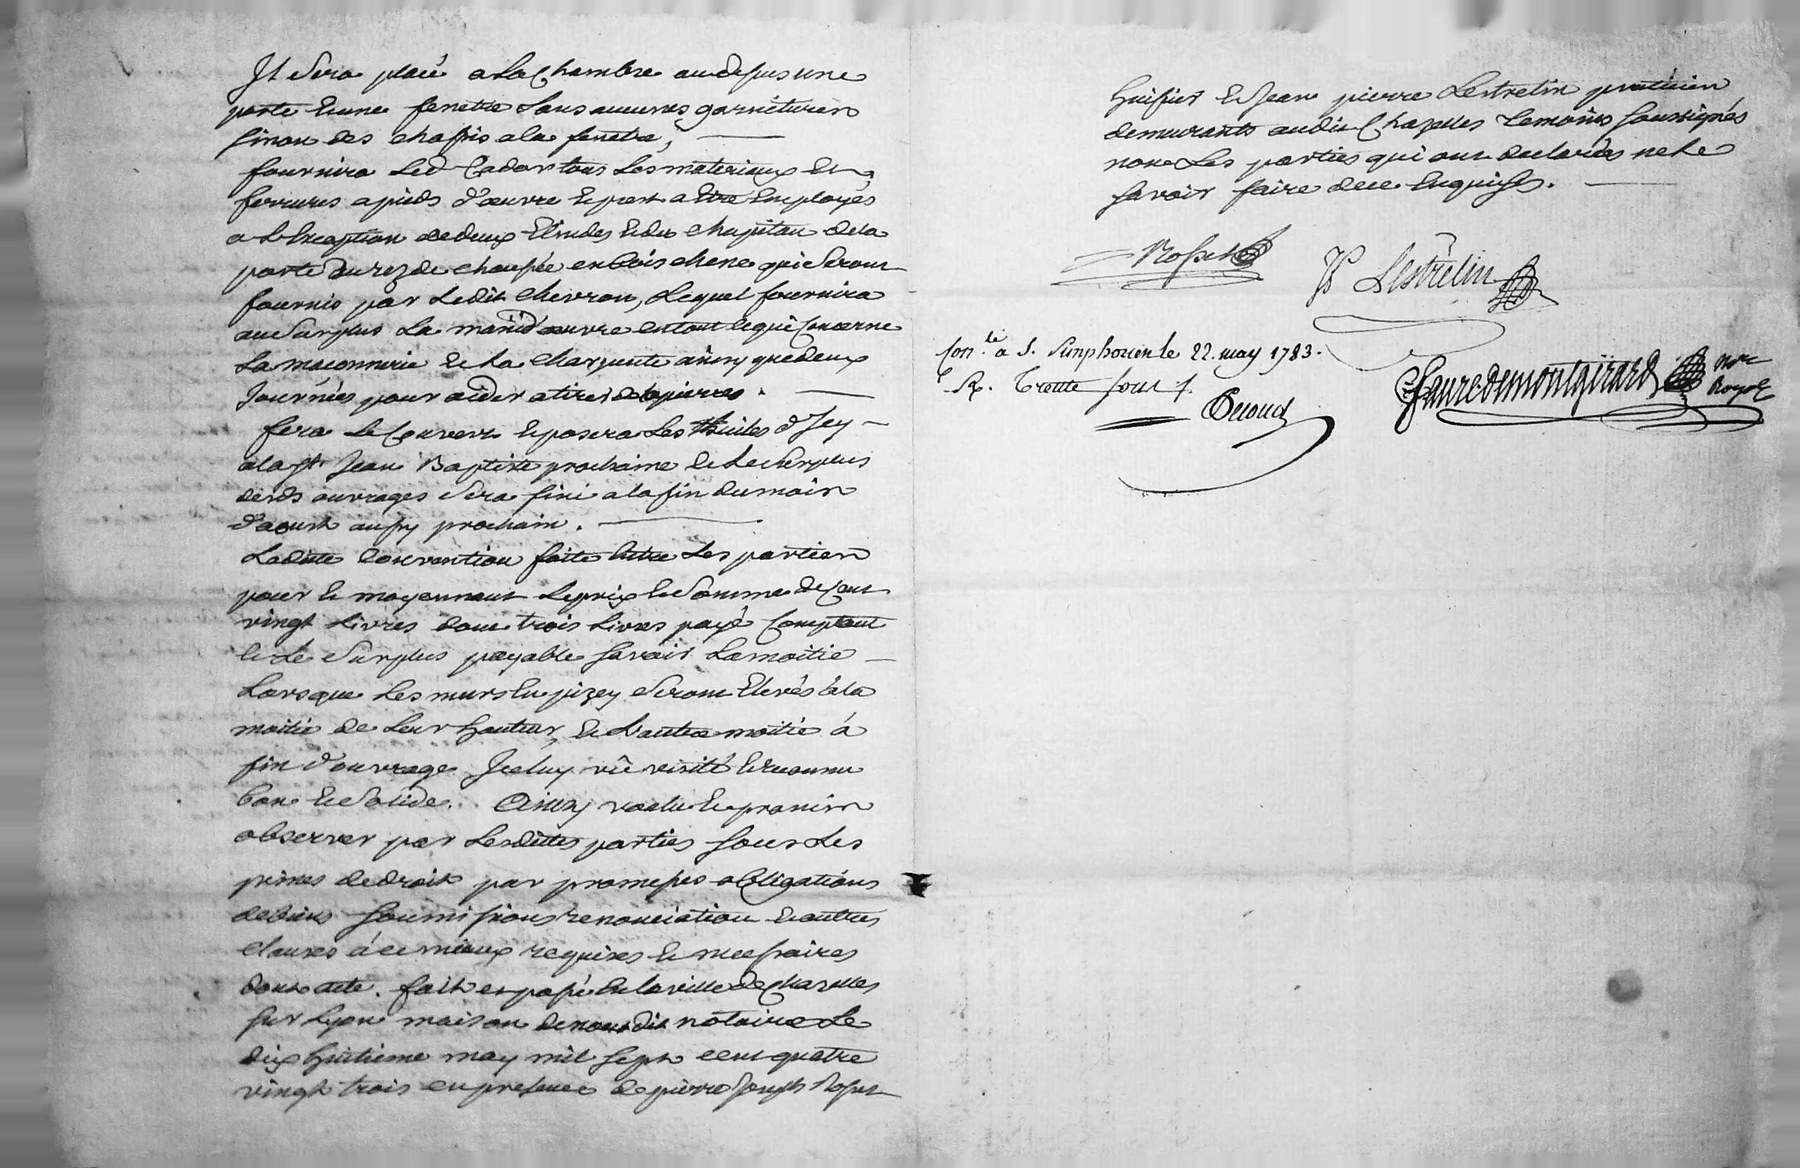 Il sera placé a la Chambre au dessus une
porte et une fenetre sans aucunes garnitures
sinon des chassis a la fenetre,
fournira led Cadar tous les materiaux et
ferrures a pieds d'œuvre et prest a etre employés
a l'exception de deux Etrides et du chapitau de la
porte du rez de chaussée en bois chene qui seront
fournis par ledit Chevron, lequel fournira
au surplus la main d'œuvre en tout ce qui concerne
la maconnerie et la charpente ainsy que deux
Journées pour aider a tirer de la pierres.
fera le Couvert et posera les thuiles d'Jcy
a la St Jean Baptiste prochaine et le surplus
desds ouvrages sera fini a la fin du mois
d'aoust aussy prochain.
Ladite convention faite entre les parties
pour et moyennant le prix et somme de Cent
vingt Livres dont trois Livres payé Comptant
et le surplus payable savoir la moitie
Lorsque les murs en pizey seront Elevés à la
moitié de leur hauteur et l'autre moitié á
fin d'ouvrage Jceluy vû visité et reconnu
bon et solide. Ainsy voulu et promis
observer par lesdittes parties sous les
peines de droit par promesses obligations
de biens soumissions renonciation et autres
clauses á ce mieux requises et necessaires
dont acte. fait et passé en la ville de Chazelles
sur Lyon maison de nous dit notaire Le
dix huitieme may mil sept cent quatre
vingt trois en presence de pierre Joseph Rosset
huissier et Jean pierre Lestrelin praticien
demeurants audit Chazelles temoins soussignés
non les parties qui ont declarées ne le
savoir faire de ce enquises.
Rosset
JP Lestrelin
Con.le a S. Simphorien le 22. may 1783.
R. Trente sous
Faure de montgirard nore
Royal